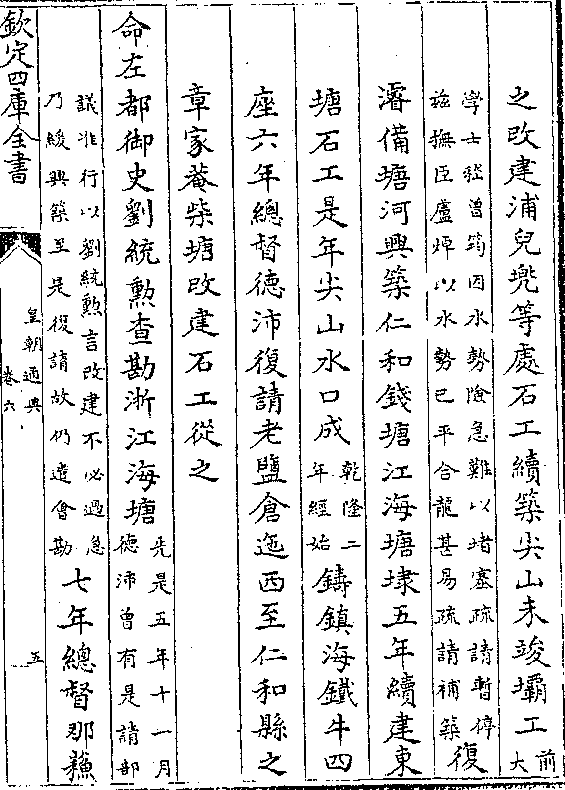 之改建浦兒兠等處石工續築尖山未竣壩工前大
學士嵇曾筠因水勢險急難以堵塞疏請暫停兹撫臣盧焯以水勢已平合龍甚易疏請補築復
濬備塘河興築仁和錢塘江海塘埭五年續建東
塘石工是年尖山水口成乾隆二年經始鑄鎮海鐵牛四
座六年總督德沛復請老鹽倉迤西至仁和縣之
章家菴柴塘改建石工從之
命左都御史劉統勲查勘浙江海塘先是五年十一月德沛曾有是請部
議准行以劉統勲言改建不必過急乃緩興築至是復請故仍遣會勘七年總督那蘇
欽定四庫全書
皇朝通典
卷六
五